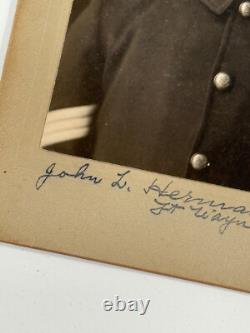 John L. Herma
Ft Wayn
ebay.com